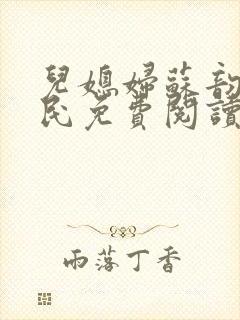 兒媳婦蘇韵
民免費閱讀
雨落丁香